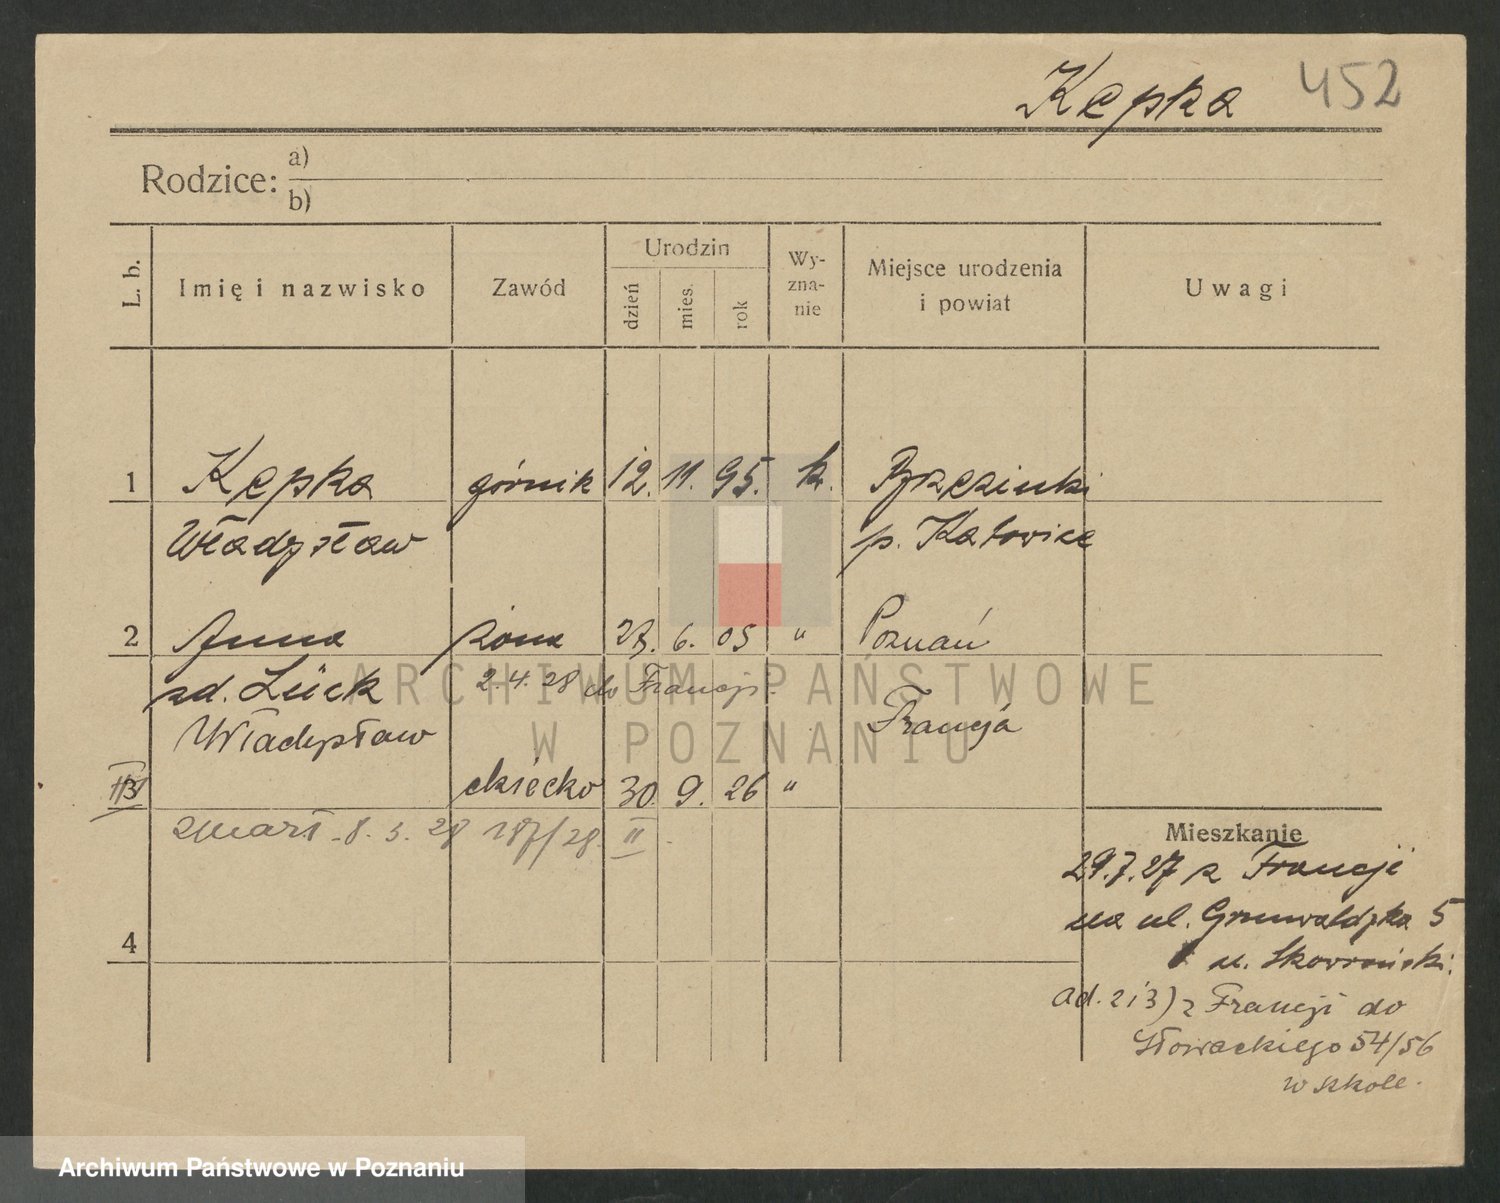 Kępka 452
Rodzice: a)
b)
L. b. Imię i nazwisko Zawód Urodzin dzień mies. rok Wyznanie Miejsce urodzenia i powiat Uwagi
1 Kępka górnik 12. 11. 95. k. Brzezinki
Władysław p. Katowice
2 Anna żona 27. 6. 05 " Poznań
zd. Lück 2.4.28 do Francji.
Władysław Francja
3 dziecko 30. 9. 26 "
zmarł 8.3.28 187/28 II
4
Mieszkanie
29.7.27 z Francji
na ul. Grunwaldzka 5
u. Skowroński.
ad. 2 i 3) z Francji do
Słowackiego 54/56
w szkole.
ARCHIWUM PAŃSTWOWE
W POZNANIU
Archiwum Państwowe w Poznaniu